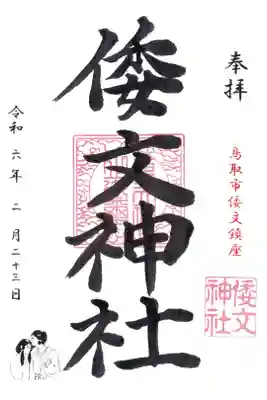 奉拝
鳥取市倭文鎮座
倭文神社
倭文
神社
令和六年 二月二十三日